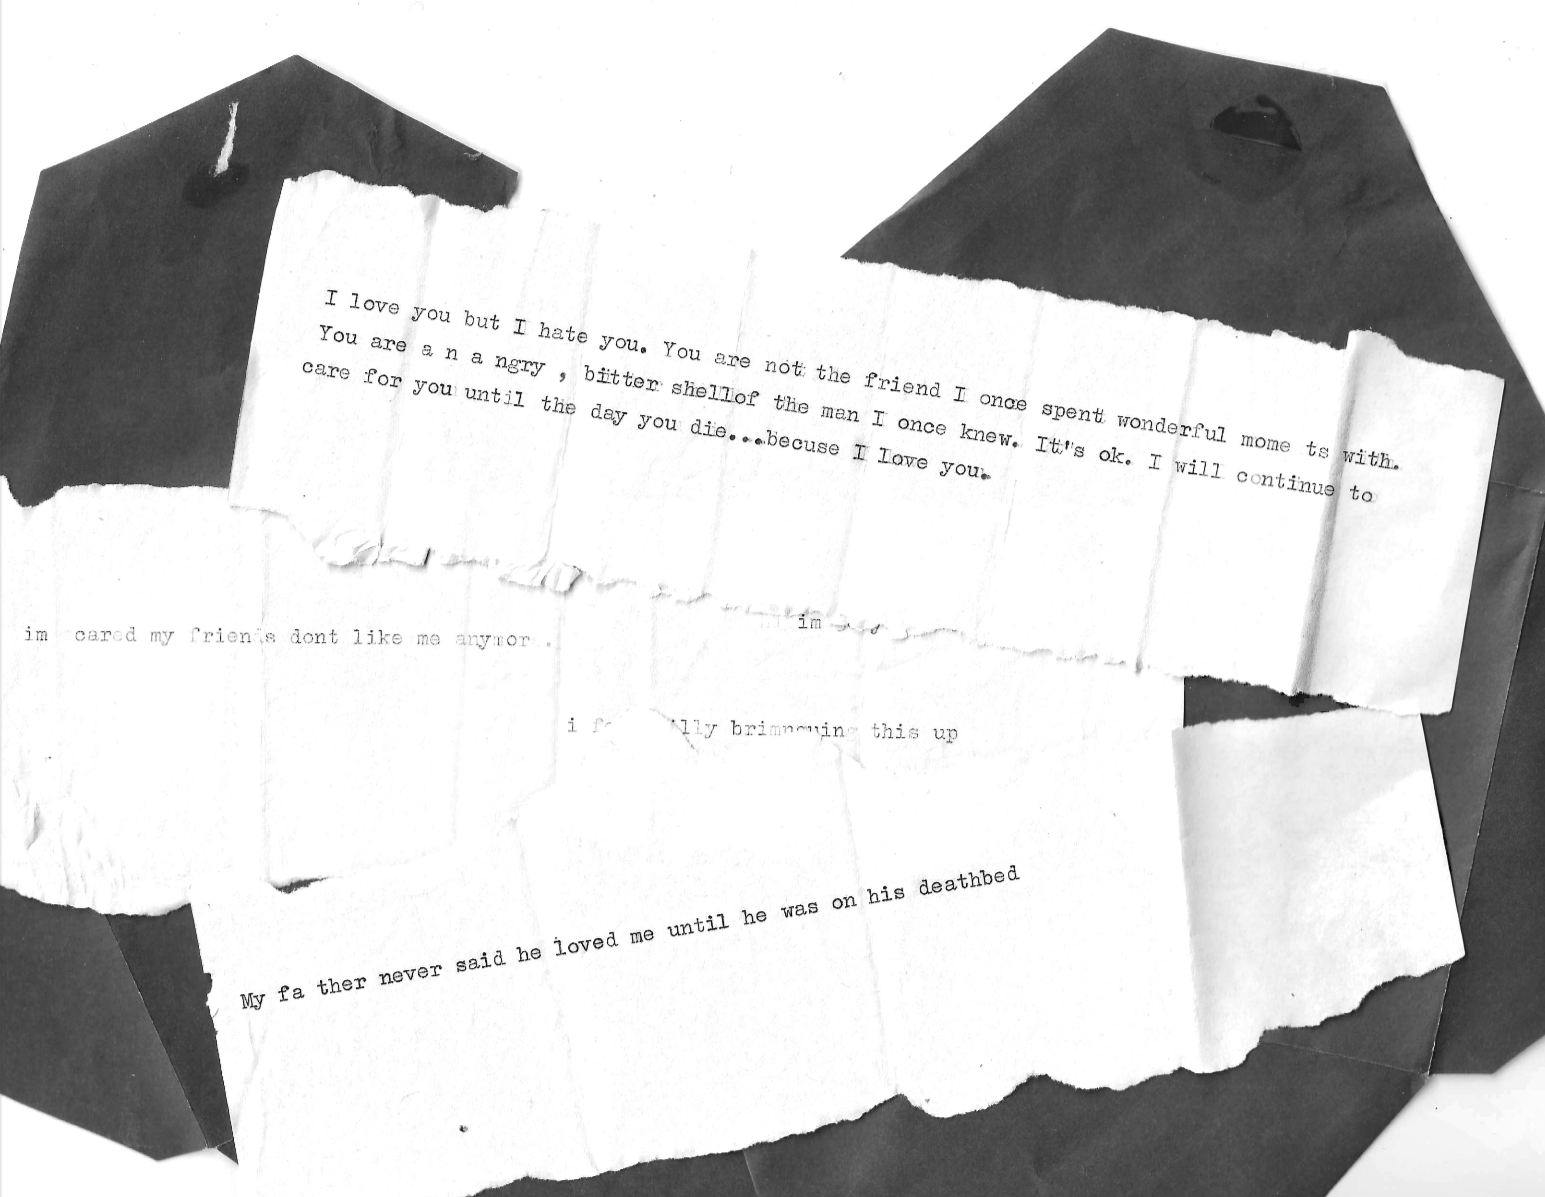 I love you but I hate you. You are not the friend I once spent wonderful mome ts with.
You are a n a ngry , bitter shellof the man I once knew. It's ok. I will continue to
care for you until the day you die...becuse I love you.
im
im cared my friends dont like me anymor .
i this up
My fa ther never said he loved me until he was on his deathbed